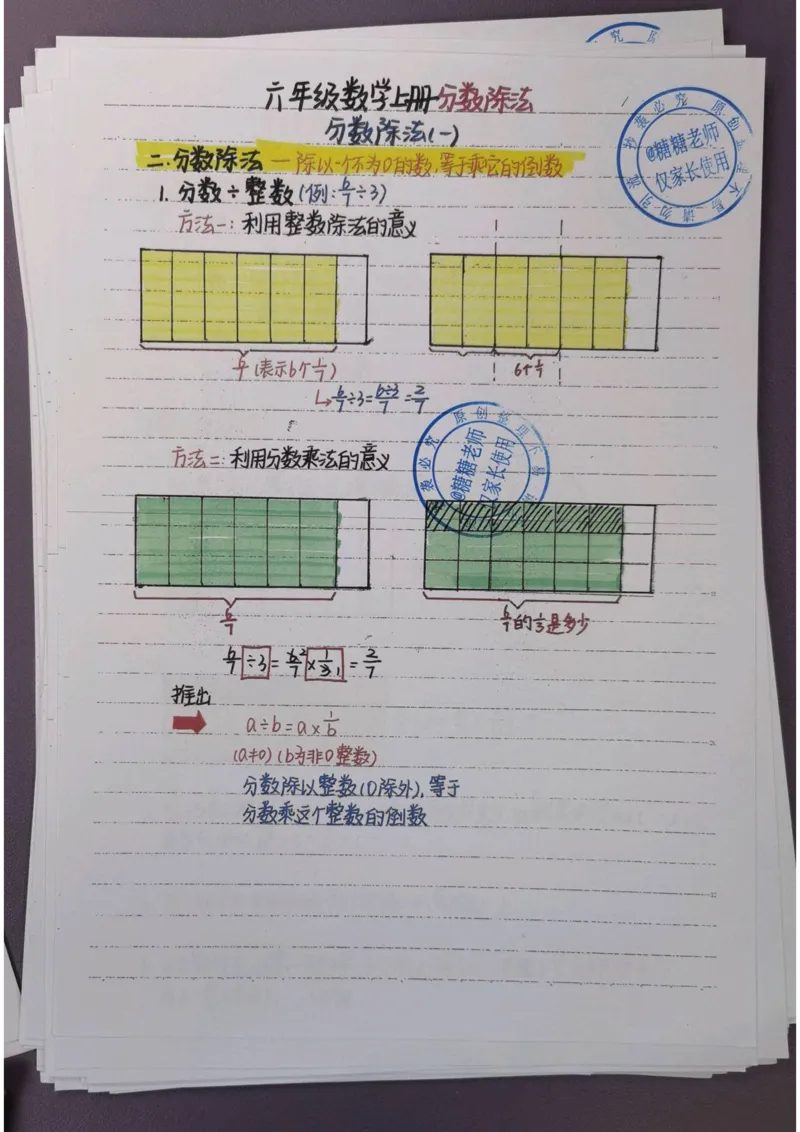 六年级数学上册分数除法
分数除法(一)
二.分数除法 — 除以一个不为0的数,等于乘它的倒数
1. 分数÷整数(例:6/7÷3)
方法一:利用整数除法的意义
6/7(表示6个1/7)
6个1/7
↳6/7÷3=6÷3/7=2/7
方法二:利用分数乘法的意义
6/7
6/7的1/3是多少
6/7÷3=6²/7×1/3₁=2/7
推出
a÷b=a×1/b
(a≠0)(b为非0整数)
分数除以整数(0除外),等于
分数乘这个整数的倒数
@糖糖老师
仅家长使用
@糖糖老师
仅家长使用